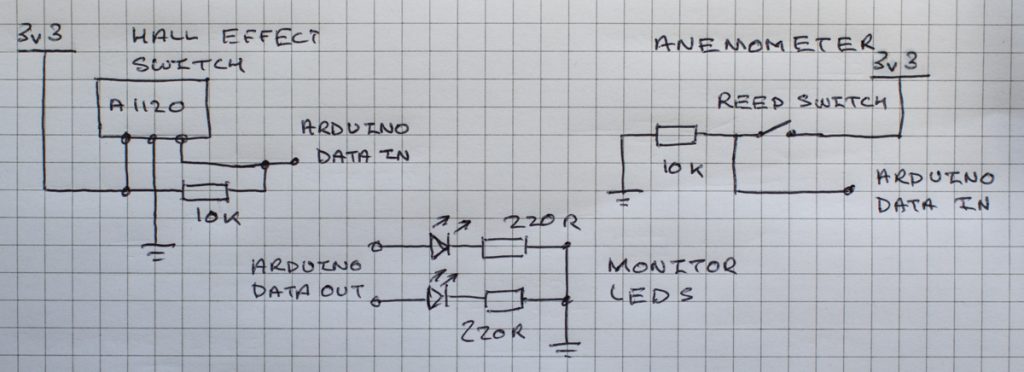 3v3
HALL EFFECT
SWITCH
A1120
ARDUINO
DATA IN
10K
ANEMOMETER
3v3
REED SWITCH
10K
ARDUINO
DATA IN
220R
ARDUINO
DATA OUT
220R
MONITOR
LEDS